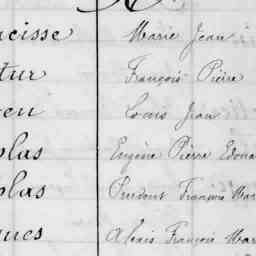 cisse Marie Jean
tur François Pierre
en Louis Jean
plas Eugène Pierre Edoua
plas Prudent François Mar
ques Alexis François Mar